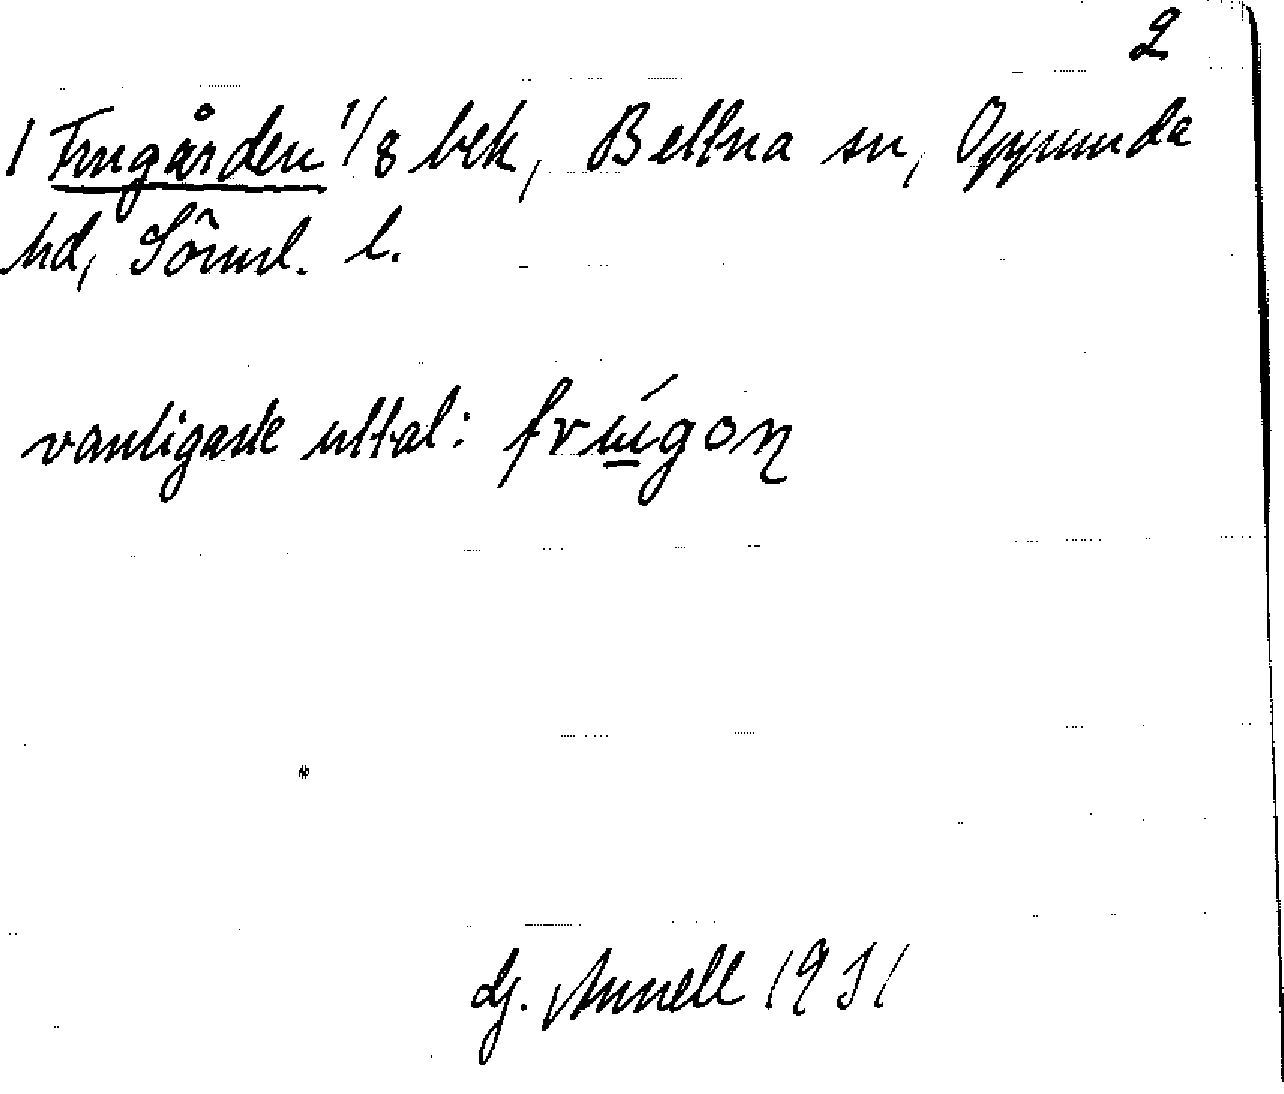 2
1 Frugården 1/8 bek, Bettna sn, Oppunda
hd, Sörml. l.
vanligaste uttal: frúgoη
G. Annell 1931